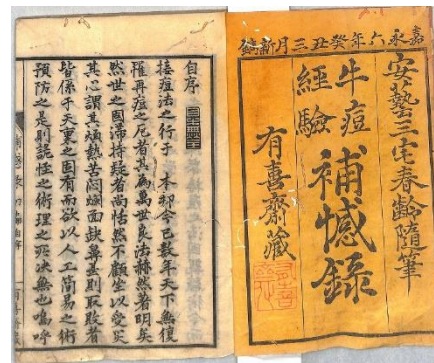 嘉永六年癸丑三月新鐫
安藝三宅春齡隨筆
牛痘
經驗
補憾錄
有喜齋藏
自序
接痘法之行于 本邦今已數年天下無復
罹再痘之厄者其為萬世良法赫然著明矣
然世之固滯持疑者尚恬然不顧坐以受災
其心謂其煩熱苦悶滿面缺鼻甚則取斃者
皆係于天稟之固有而欲以人工簡易之術
預防之是則詭怪之術理之所决無也嗚呼